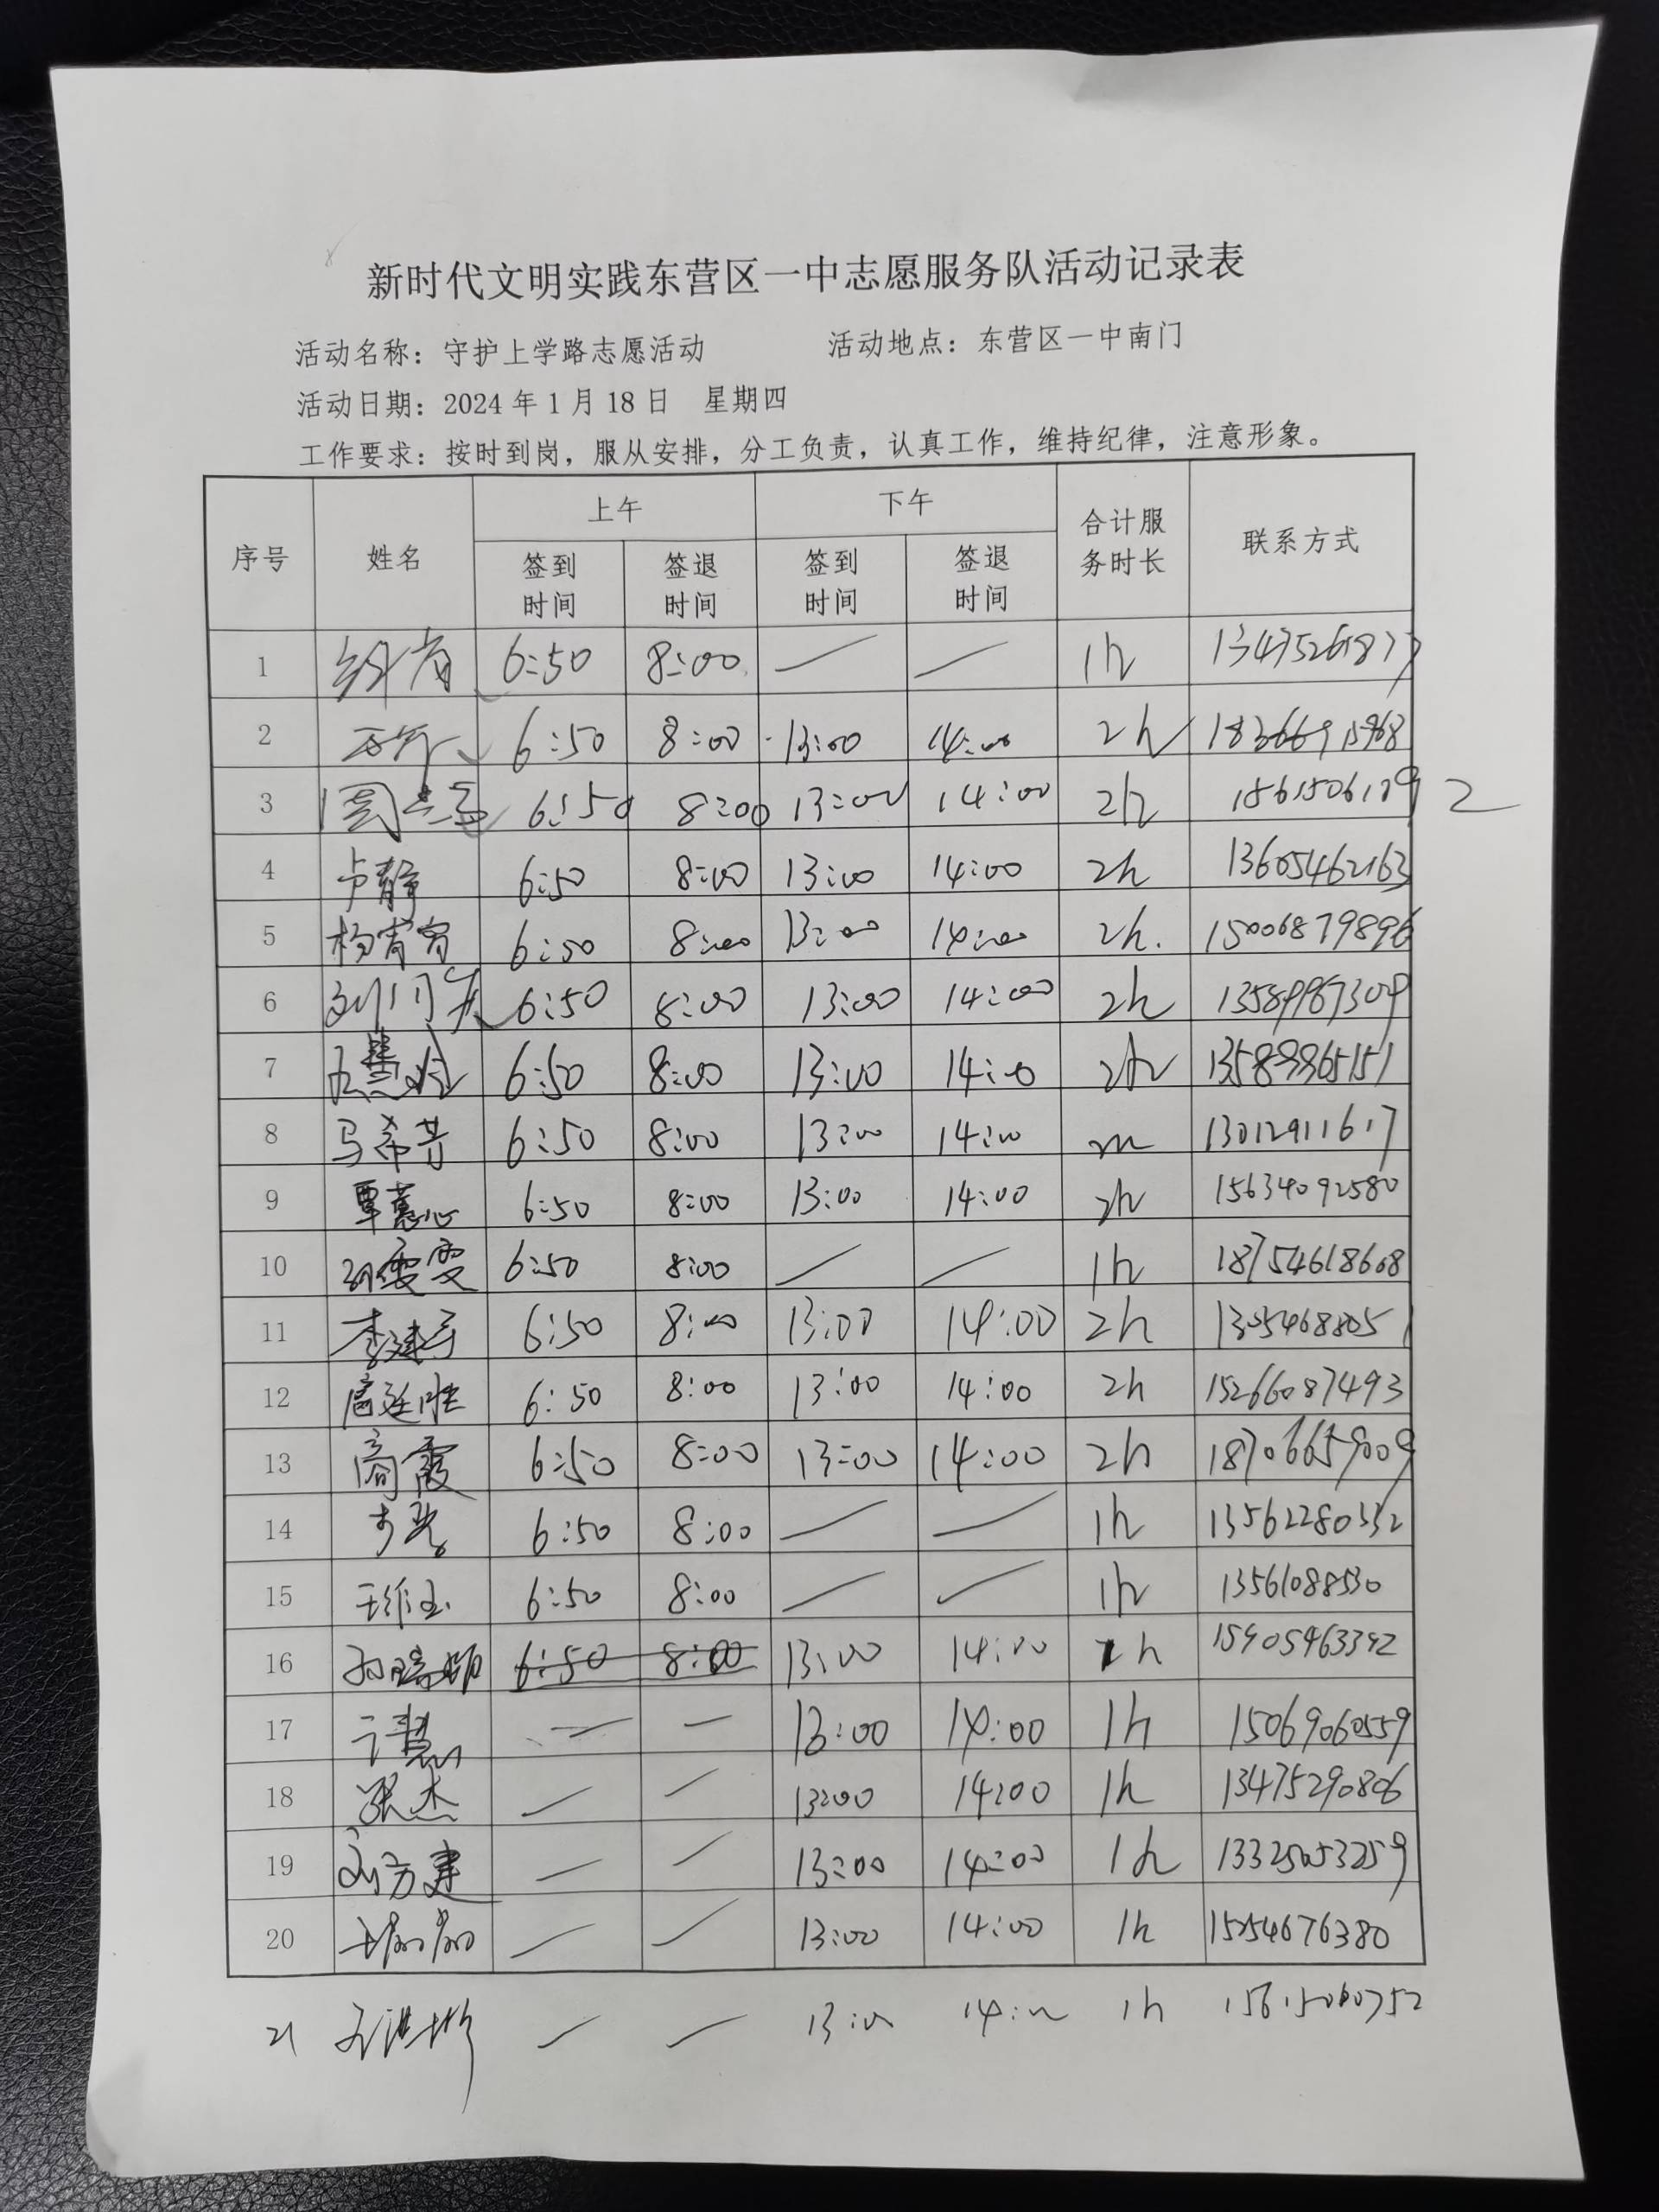 新时代文明实践东营区一中志愿服务队活动记录表
活动名称：守护上学路志愿活动 活动地点：东营区一中南门
活动日期：2024年1月18日 星期四
工作要求：按时到岗，服从安排，分工负责，认真工作，维持纪律，注意形象。
序号 姓名 上午 下午 合计服务时长 联系方式
签到时间 签退时间 签到时间 签退时间
1 6:50 8:00 — — 1h
2 6:50 8:00 13:00 14:00 2h
3 6:50 8:00 13:00 14:00 2h 2
4 卢静 6:50 8:00 13:00 14:00 2h 13605462163
5 杨宵宵 6:50 8:00 13:00 14:00 2h. 15006879896
6 6:50 8:00 13:00 14:00 2h 13589987309
7 6:50 8:00 13:00 14:00 2h 13589965151
8 马希芳 6:50 8:00 13:00 14:00 2h 13012911617
9 覃蕙心 6:50 8:00 13:00 14:00 2h 15634092580
10 6:50 8:00 — — 1h 18754618608
11 6:50 8:00 13:00 14:00 2h 13054688051
12 6:50 8:00 13:00 14:00 2h 15266087493
13 商霞 6:50 8:00 13:00 14:00 2h 18706659009
14 6:50 8:00 — — 1h 13562280332
15 6:50 8:00 — — 1h 13561088530
16 6:50 8:00 13:00 14:00 1h 15905463392
17 — — 13:00 14:00 1h 15069060559
18 张杰 — — 13:00 14:00 1h 13475290806
19 — — 13:00 14:00 1h 13325053259
20 — — 13:00 14:00 1h
21 — — 13:00 14:00 1h 15615060752